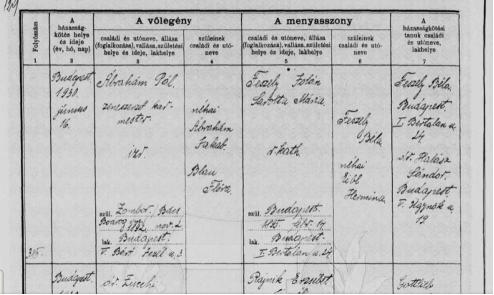 Folyószám
A házasság-
kötés helye
és ideje
(év, hó, nap)
A vőlegény
családi és utóneve, állása
(foglalkozása), vallása, születési
helye és ideje, lakhelye
szüleinek
családi és utó-
neve
A menyasszony
családi és utóneve, állása
(foglalkozása), vallása, születési
helye és ideje, lakhelye
szüleinek
családi és utó-
neve
A házasságkötési
tanuk családi és
utóneve,
lakhelye
1
2
3
4
5
6
7
Budapest
június
16.
Ábrahám Pál
zeneszerző kar-
mester
izr.
szül. Zombor. Bács
nov. 2
lak. Budapest
néhai
Ábrahám
Jakab
Blau
Flóra
Feszely
Sarolta Mária
r. kath
szül. Budapest
lak. Budapest
I Bertalan u. 24
Feszely
Béla
néhai
Eibl
Hermina
Feszely Béla
Budapest
I. Bertalan u.
24
dr. Halász
Sándor
Budapest
19
Budapest
dr.
Rajnik Erzsébet
Gottlieb